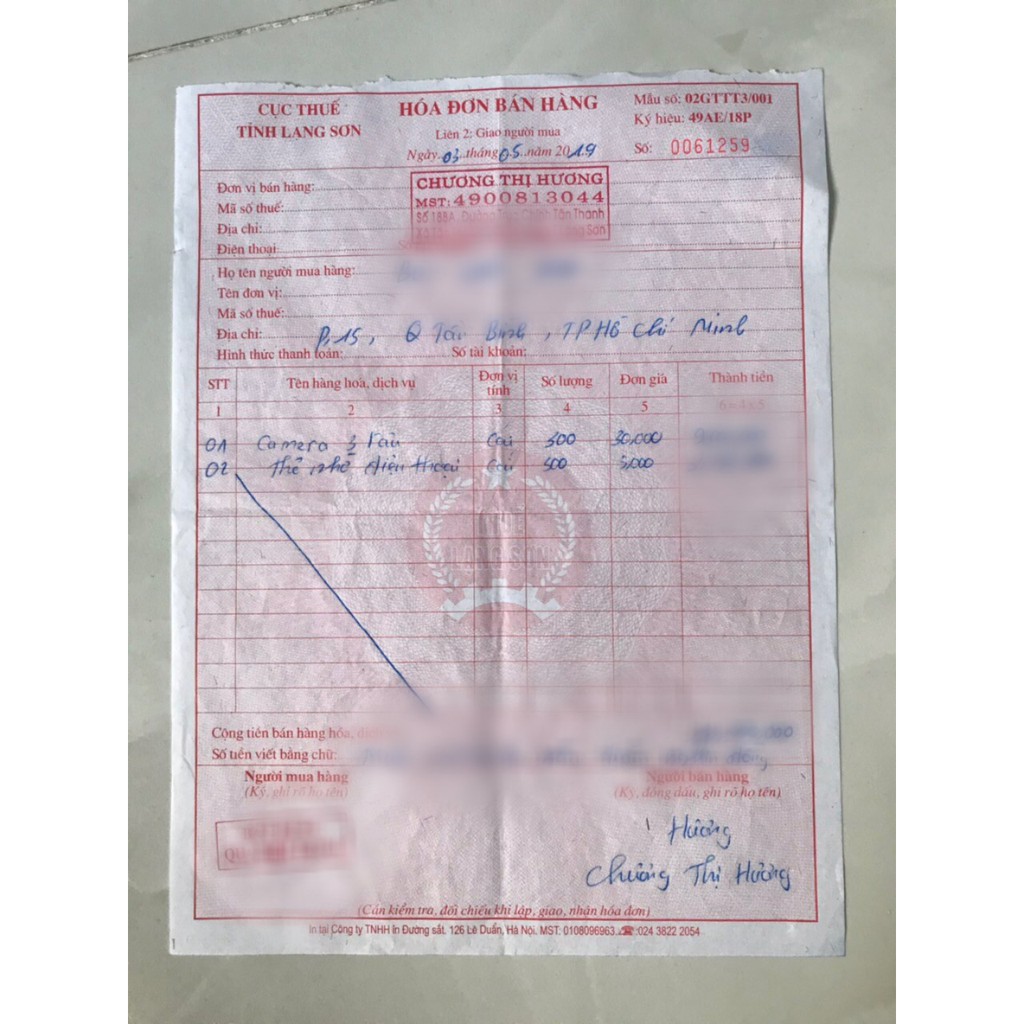 CỤC THUẾ
TỈNH LẠNG SƠN
HÓA ĐƠN BÁN HÀNG
Liên 2: Giao người mua
Ngày 03 tháng 05 năm 2019
Mẫu số: 02GTTT3/001
Ký hiệu: 49AE/18P
Số: 0061259
Đơn vị bán hàng:
CHƯƠNG THỊ HƯƠNG
Mã số thuế:
MST: 4900813044
Địa chỉ:
Tân Thanh
Điện thoại:
Họ tên người mua hàng:
Tên đơn vị:
Mã số thuế:
Địa chỉ: P.15, Q Tân Bình, TP Hồ Chí Minh
Hình thức thanh toán: Số tài khoản:
STT Tên hàng hoá, dịch vụ Đơn vị tính Số lượng Đơn giá Thành tiền
1 2 3 4 5 6=4x5
01 Camera Cái 300 30,000
02 Thẻ nhớ điện thoại Cái 5,000
LẠNG SƠN
Cộng tiền bán hàng hóa,
Số tiền viết bằng chữ:
Người mua hàng
(Ký, ghi rõ họ tên)
Người bán hàng
(Ký, đóng dấu, ghi rõ họ tên)
Hương
Chương Thị Hương
(Cần kiểm tra, đối chiếu khi lập, giao, nhận hóa đơn)
In tại Công ty TNHH in Đường sắt. 126 Lê Duẩn, Hà Nội. MST: 0108096963 ☎: 024 3822 2054